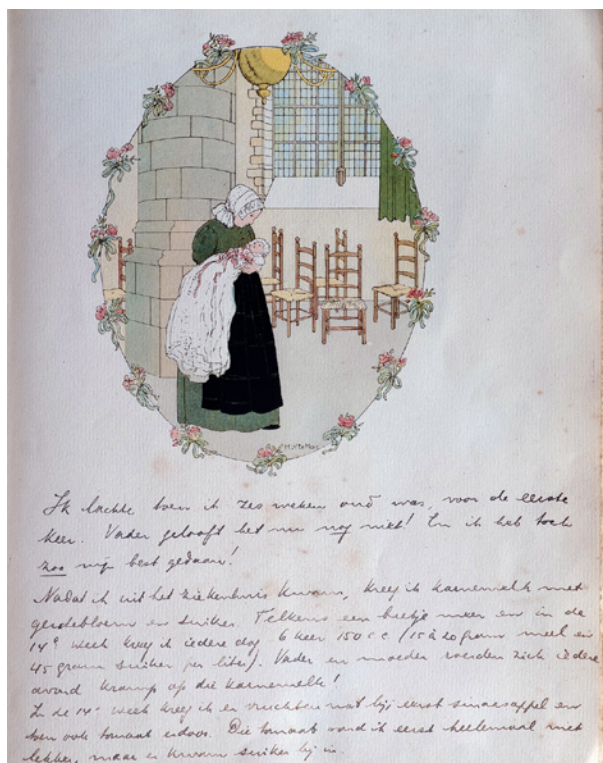 H. Willebeek Le Mair
Ik lachte toen ik zes weken oud was, voor de eerste
keer. Vader gelooft het nu nog niet! En ik heb toch
zoo mijn best gedaan!
Nadat ik uit het ziekenhuis kwam, kreeg ik karnemelk met
gerstebloem en suiker. Telkens een beetje meer en in de
14e week kreeg ik iedere dag 6 keer 150 c.c. (15 à 20 gram meel en
45 gram suiker per liter). Vader en moeder roerden zich iedere
avond kramp op die karnemelk!
In de 14e week kreeg ik er vruchten nat bij eerst sinaasappel en
toen ook tomaat erdoor. Die tomaat vond ik eerst heelemaal niet
lekker, maar er kwam suiker bij in.